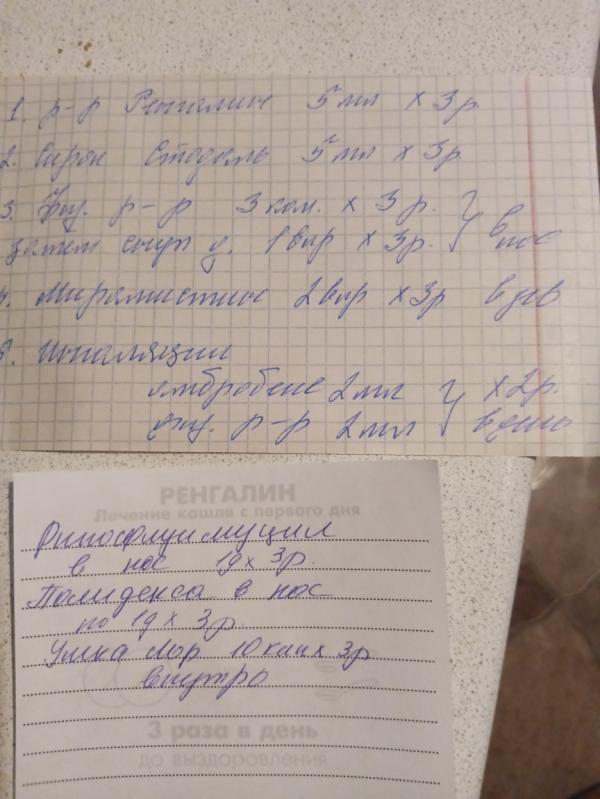 1. р-р Ренгалин 5 мл х 3 р.
2. Сироп Стодаль 5 мл х 3 р
3. Физ. р-р 3 кап. х 3 р. } в
затем 1 впр х 3 р. } нос
4. Мирамистин 2 впр х 3 р в зев
5. Ингаляции
амбробене 2 мл } х 2 р.
физ. р-р 2 мл } в день
РЕНГАЛИН
Лечение кашля с первого дня
Ринофлуимуцил
в нос 1д х 3 р.
Полидекса в нос
по 1д х 3 р.
Умка Лор 10 кап х 3 р
внутрь
3 раза в день
до выздоровления